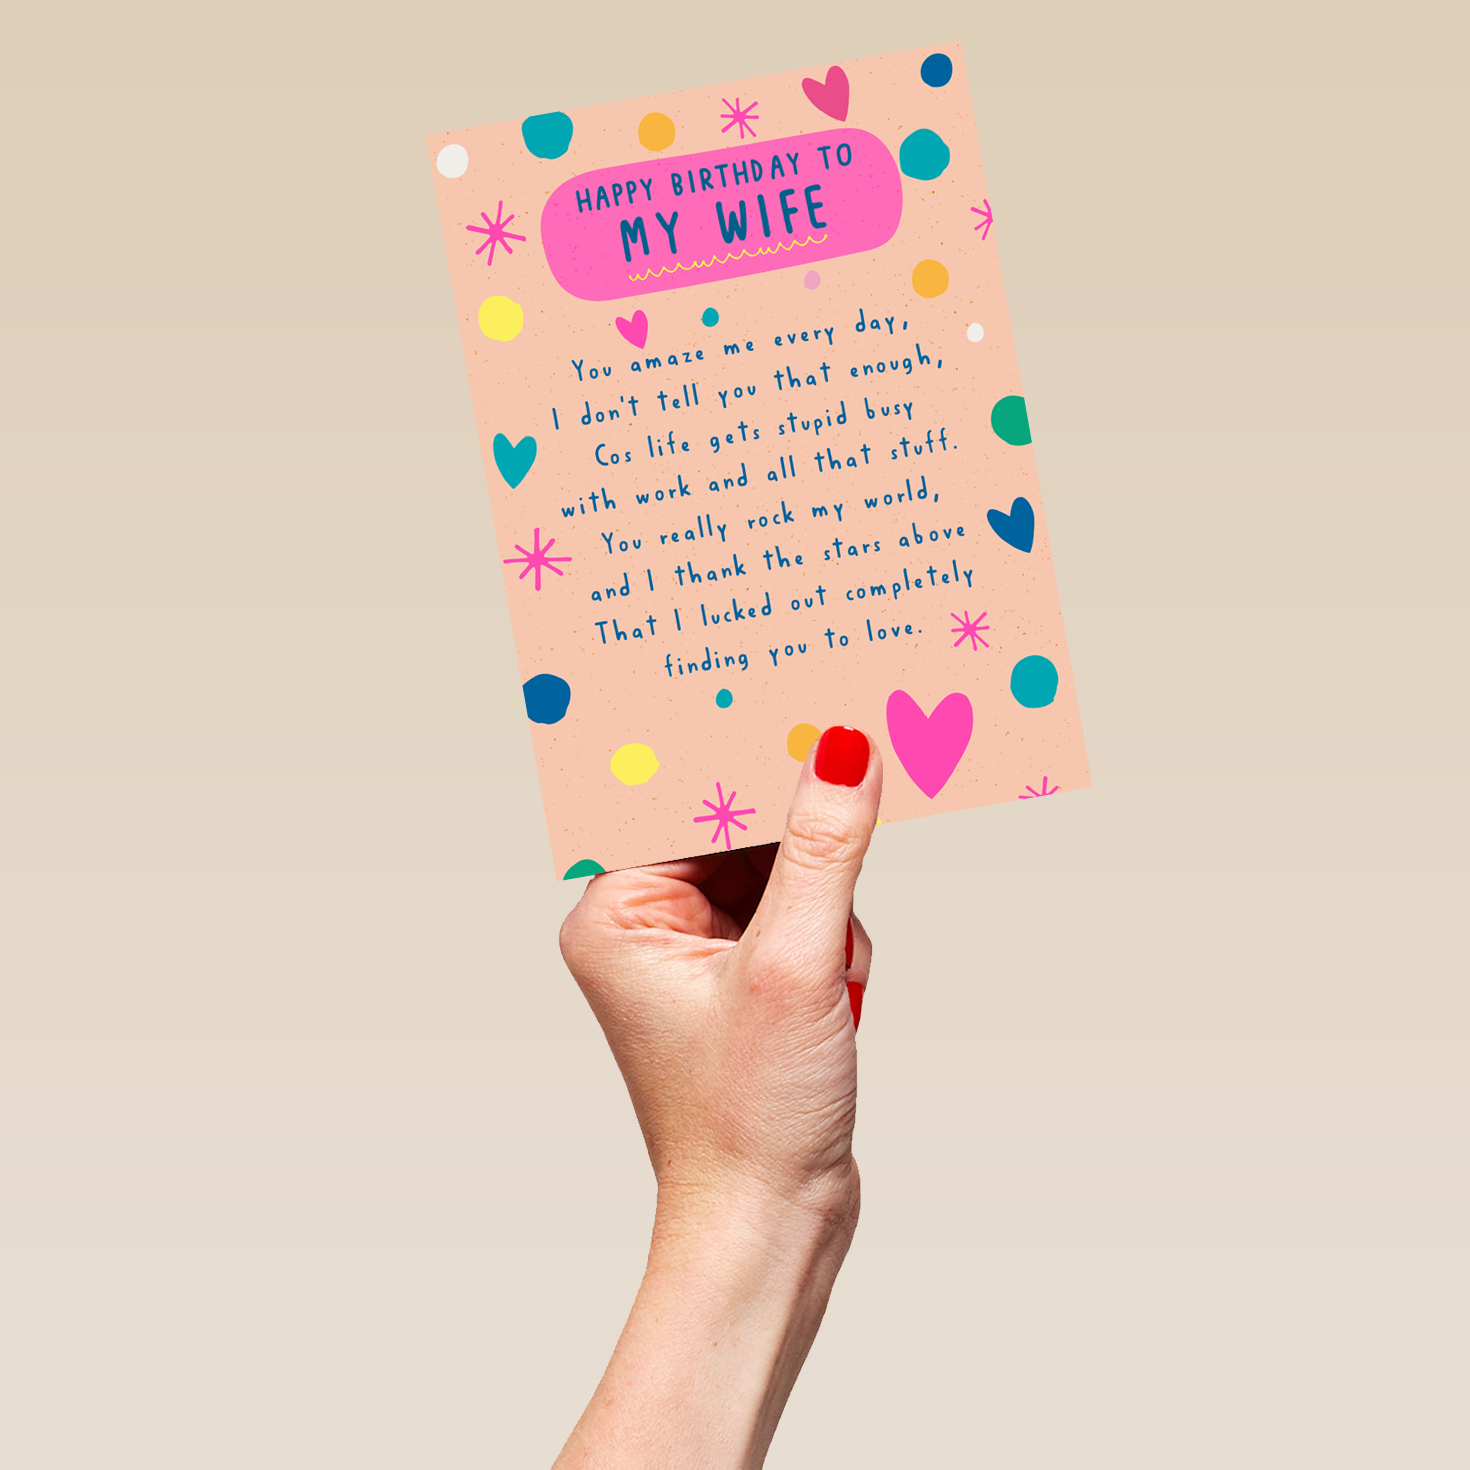 HAPPY BIRTHDAY TO
MY WIFE
You amaze me every day,
I don't tell you that enough,
Cos life gets stupid busy
with work and all that stuff.
You really rock my world,
and I thank the stars above
That I lucked out completely
finding you to love.